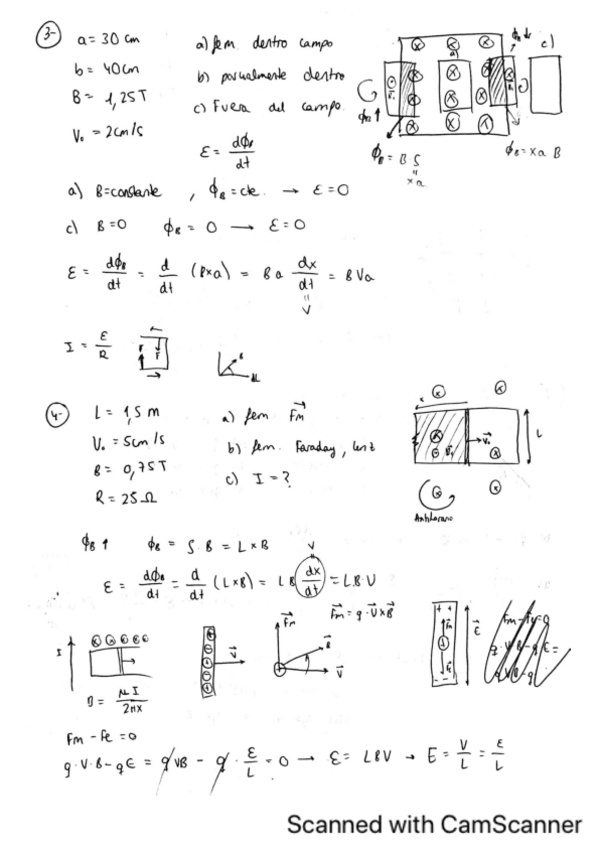 3-
a = 30 cm
b = 40cm
B = 1,25T
V₀ = 2cm/s
a) fem dentro campo
b) parcialmente dentro
c) Fuera del campo.
ε = dϕ_B/dt
ϕ_B ↓
a)
c)
ϕ_B ↑
ϕ_B = B S
x a
ϕ_B = x a B
a) B=constante , ϕ_B = cte. → ε = 0
c) B=0 ϕ_B = 0 → ε = 0
ε = dϕ_B/dt = d/dt (B x a) = B a dx/dt = B V a
V
I = ε/R
4-
L = 1,5 m
V₀ = 5cm/s
B = 0,75T
R = 25 Ω
a) fem F⃗m
b) fem. Faraday, Lenz
c) I = ?
x
V₀
L
Antihorario
ϕ_B ↑ ϕ_B = S. B = L x B
V
ε = dϕ_B/dt = d/dt (L x B) = L B dx/dt = L B V
F⃗m = q · V⃗ x B⃗
F⃗m
V⃗
V⃗
I
B = μ I / 2πx
Fm - Fe = 0
q · V · B - q E = q V B - q · ε/L = 0 → ε = L B V → E = V/L = ε/L
Scanned with CamScanner